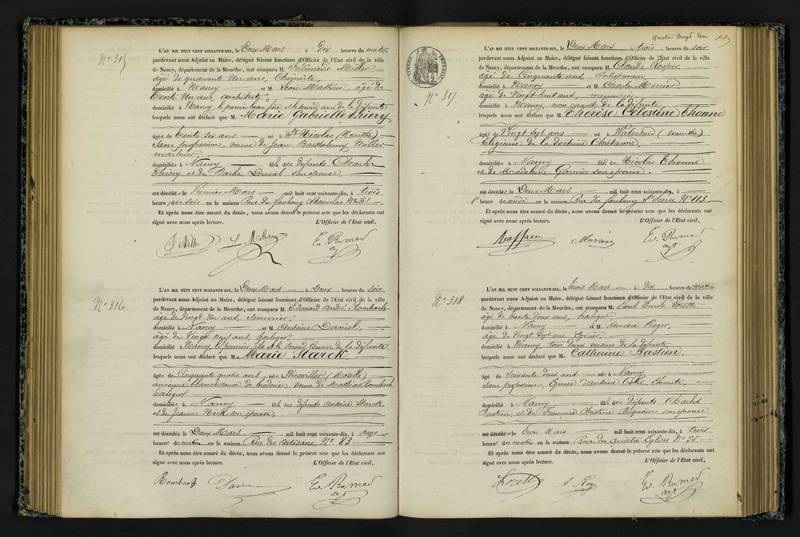 N° 315
L'AN MIL HUIT CENT SOIXANTE-DIX, le Deux Mars à Dix heures du matin
pardevant nous Adjoint au Maire, délégué faisant fonctions d'Officier de l'État civil de la ville
de Nancy, département de la Meurthe, ont comparu M. Ferdinand Miller
âgé de quarante un ans,
domicilié à Nancy et M. Louis Mathieu, âgé de
trente un ans, architecte
domicilié à Nancy, le premier fils et le second ami de la défunte
lesquels nous ont déclaré que Me Marie Gabrielle Thiery
âgée de trente six ans née à St Nicolas (Meurthe)
sans profession, veuve de Jean Barthélemy Miller
menuisier
domiciliée à Nancy et de défunts Charles
Thiery et de Barbe Duval son épouse
est décédée le Premier Mars mil huit cent soixante-dix, à trois
heures du soir en la maison Rue du faubourg Stanislas N° 31
Et après nous être assuré du décès, nous avons dressé le présent acte que les déclarants ont
signé avec nous après lecture. L'Officier de l'État civil,
F. Miller L. Mathieu
N° 316
L'AN MIL HUIT CENT SOIXANTE-DIX, le Deux Mars à Deux heures du soir
pardevant nous Adjoint au Maire, délégué faisant fonctions d'Officier de l'État civil de la ville
de Nancy, département de la Meurthe, ont comparu M. Edouard André Rombach
âgé de vingt un ans, serrurier
domicilié à Nancy et M. Antoine Daniel,
âgé de vingt sept ans, horloger
domicilié à Nancy, le premier fils et le second cousin de la défunte
lesquels nous ont déclaré que Me Marie Starck
âgée de cinquante quatre ans née à (Moselle)
veuve de Mathias Rombach
domiciliée à Nancy et de défunts Antoine Starck
et de Jeanne son épouse
est décédée le Deux Mars mil huit cent soixante-dix, à onze
heures du matin en la maison Rue des Artisans N° 83
Et après nous être assuré du décès, nous avons dressé le présent acte que les déclarants ont
signé avec nous après lecture. L'Officier de l'État civil,
Rombach
Quatre Vingt Un
N° 317
L'AN MIL HUIT CENT SOIXANTE-DIX, le Deux Mars à trois heures du soir
pardevant nous Adjoint au Maire, délégué faisant fonctions d'Officier de l'État civil de la ville
de Nancy, département de la Meurthe, ont comparu M. Claude
âgé de cinquante ans
domicilié à Nancy et M. Charles
âgé de vingt huit ans,
domicilié à Nancy, non parents de la défunte
lesquels nous ont déclaré que Thérèse Célestine Thenne
âgée de vingt sept ans née à (Meurthe)
religieuse de la doctrine chrétienne
domiciliée à Nancy de Nicolas Thenne
et de Madeleine Garnier son épouse
est décédée le Deux Mars mil huit cent soixante-dix, à
heure de midi en la maison Rue du faubourg St Pierre N° 113
Et après nous être assuré du décès, nous avons dressé le présent acte que les déclarants ont
signé avec nous après lecture. L'Officier de l'État civil,
N° 318
L'AN MIL HUIT CENT SOIXANTE-DIX, le trois Mars à Dix heures du matin
pardevant nous Adjoint au Maire, délégué faisant fonctions d'Officier de l'État civil de la ville
de Nancy, département de la Meurthe, ont comparu M. Paul Emile
âgé de trente deux ans, horloger
domicilié à Nancy et M. Roger
âgé de vingt sept ans
domicilié à Nancy, tous deux voisins de la défunte
lesquels nous ont déclaré que Catherine Bastien
âgée de soixante deux ans née à Nancy
sans profession, épouse d'Antoine
domiciliée à Nancy et de défunts Charles
Bastien, et de Françoise son épouse
est décédée le trois Mars mil huit cent soixante-dix, à trois
heures du matin en la maison Rue des Quatre Eglises N° 75
Et après nous être assuré du décès, nous avons dressé le présent acte que les déclarants ont
signé avec nous après lecture. L'Officier de l'État civil,